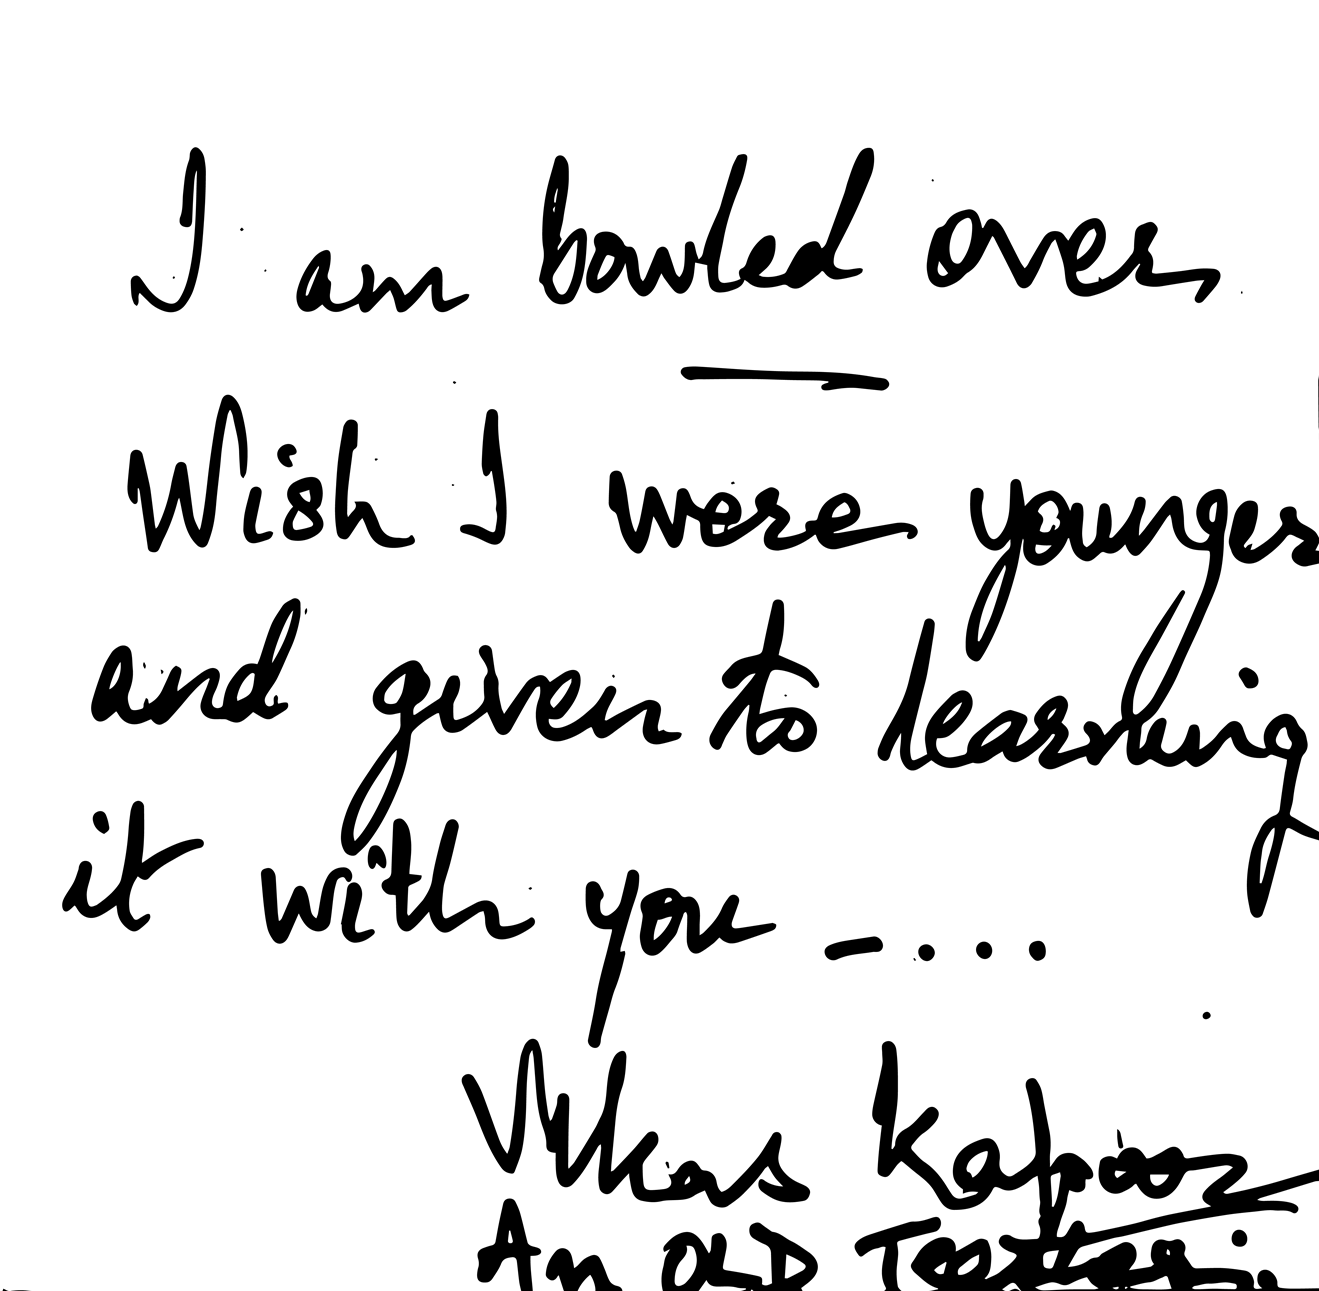 I am bowled over
Wish I were younger
and given to learning
it with you - ....
Vikas Kapoor
An OLD